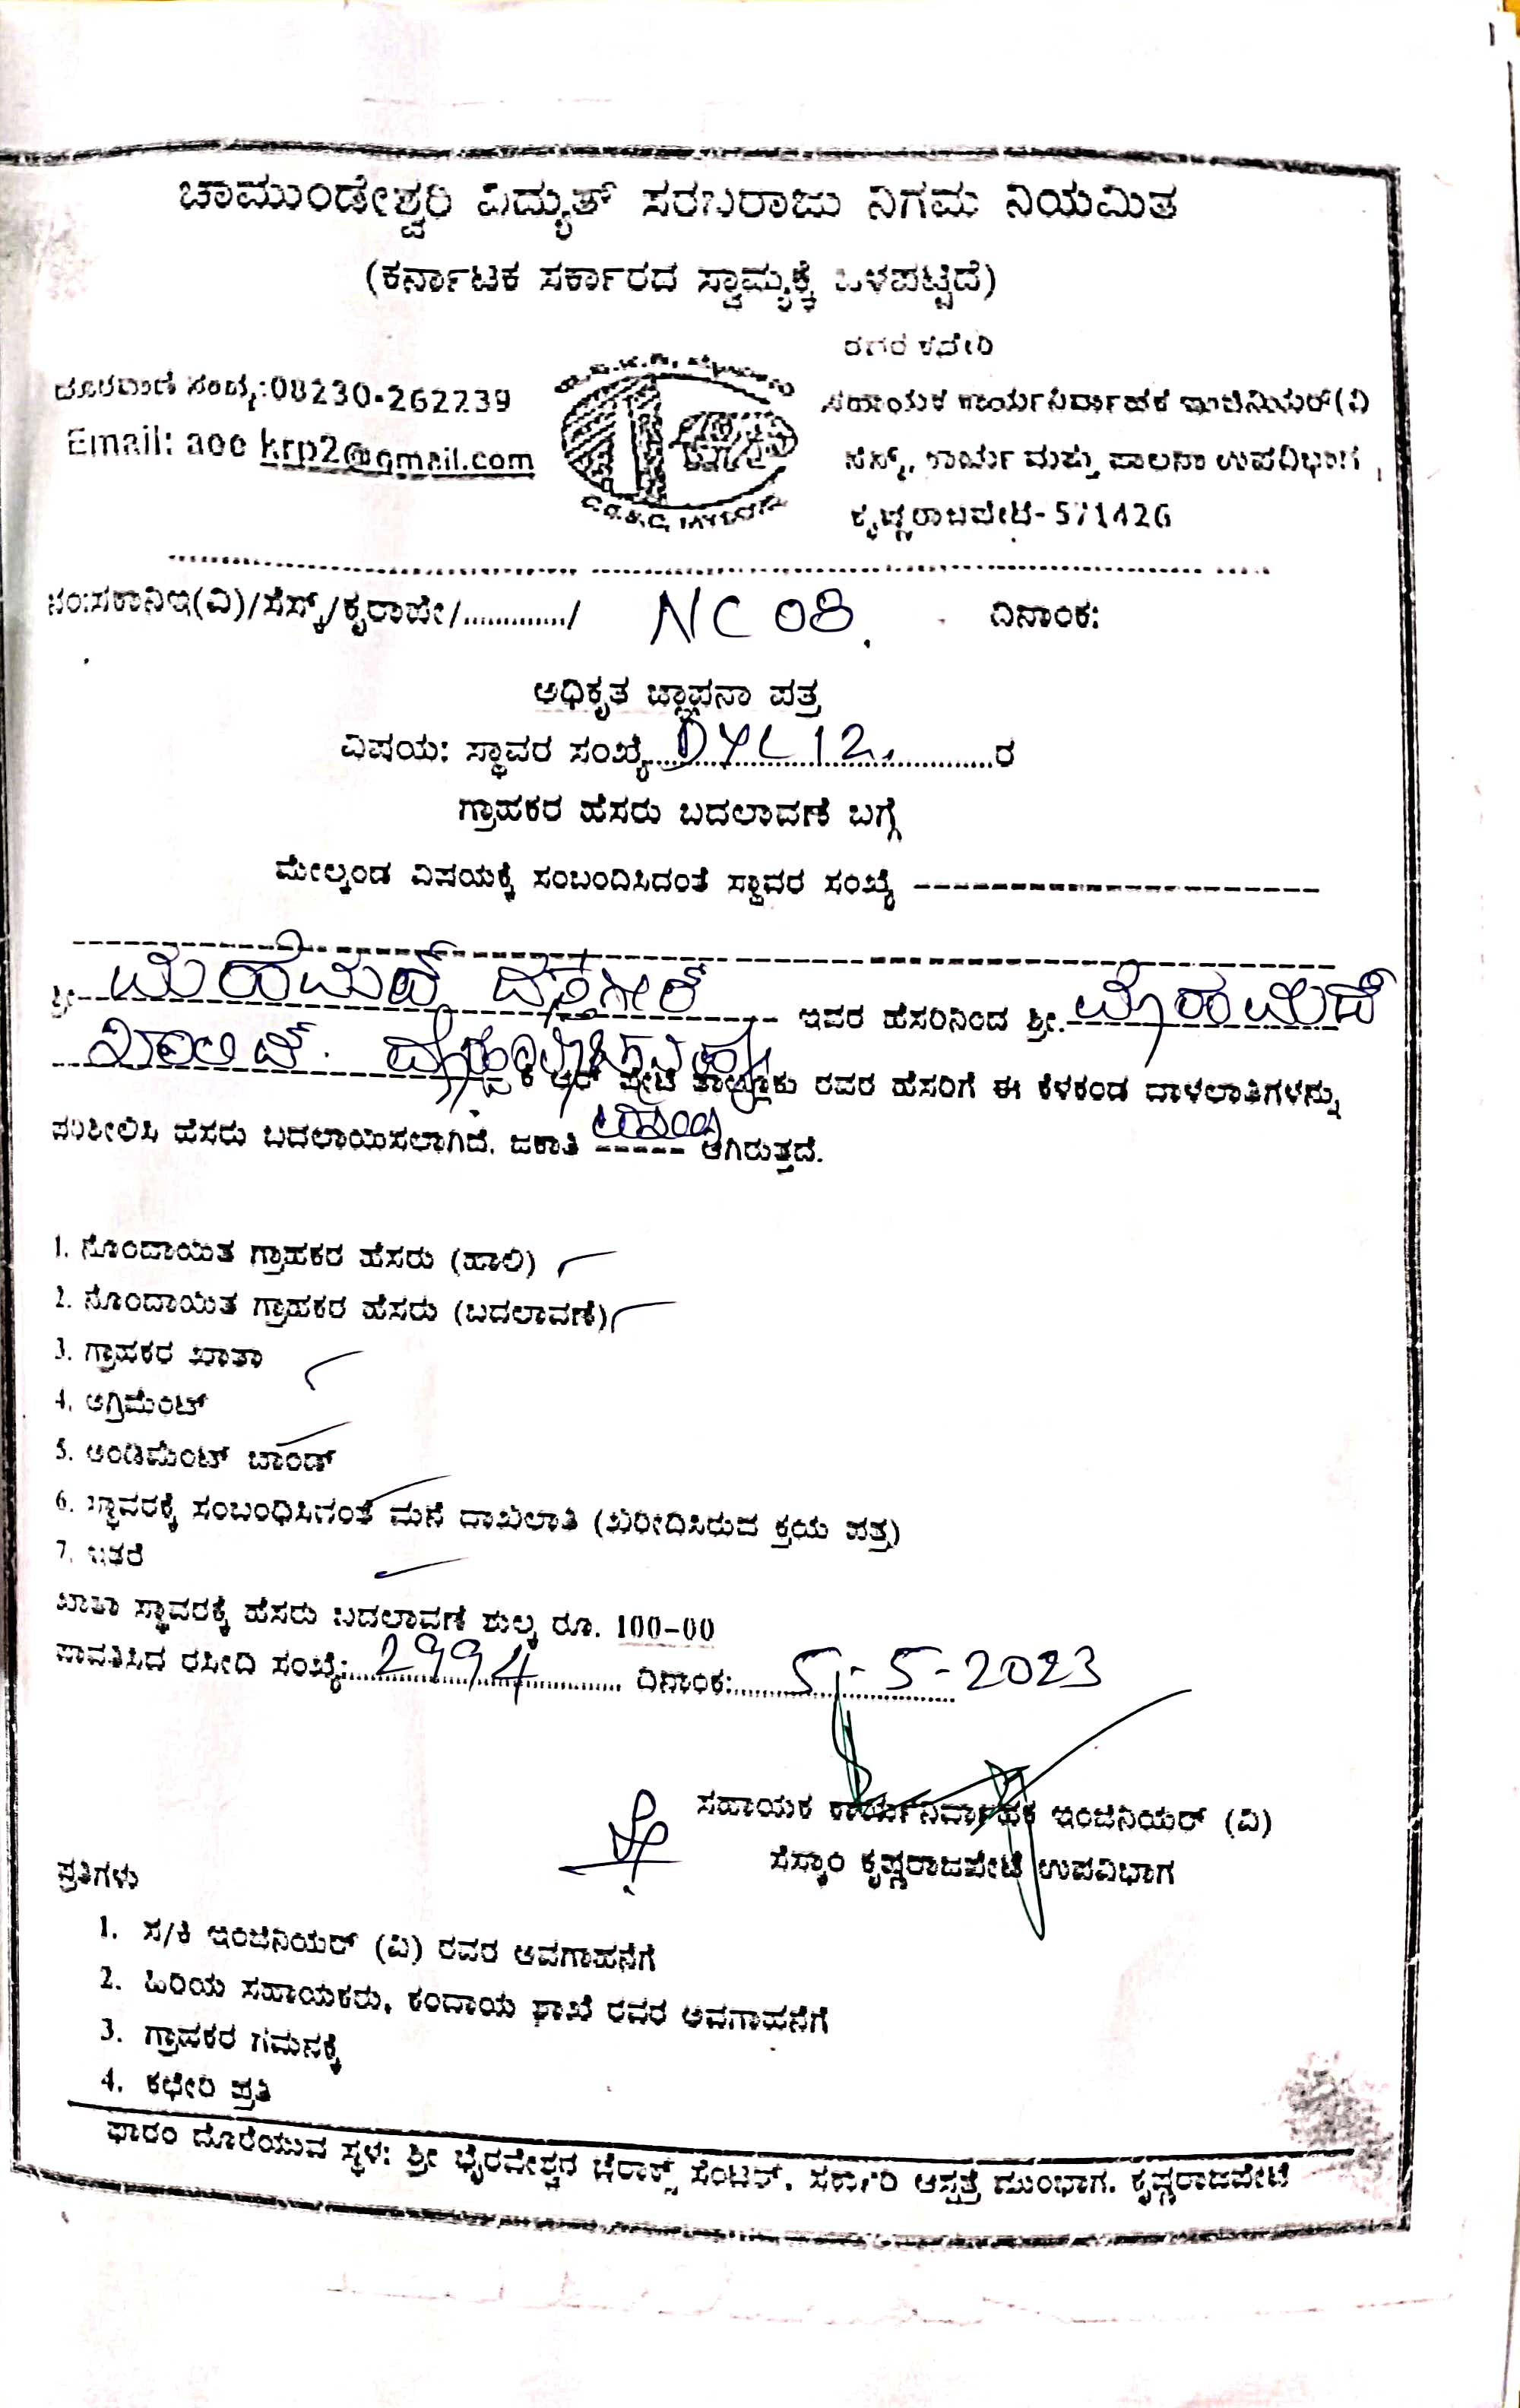 ಚಾಮುಂಡೇಶ್ವರಿ ವಿದ್ಯುತ್ ಸರಬರಾಜು ನಿಗಮ ನಿಯಮಿತ
(ಕರ್ನಾಟಕ ಸರ್ಕಾರದ ಸ್ವಾಮ್ಯಕ್ಕೆ ಒಳಪಟ್ಟಿದೆ)
ದೂರವಾಣಿ ಸಂಖ್ಯೆ:08230-262239
Email: aee krp2@gmail.com
ಸಹಾಯಕ ಕಾರ್ಯನಿರ್ವಾಹಕ ಇಂಜಿನಿಯರ್(ವಿ
ಸೆಸ್ಕ್, ಕಾರ್ಯ ಮತ್ತು ಪಾಲನಾ ಉಪವಿಭಾಗ,
ಕೃಷ್ಣರಾಜಪೇಟೆ-571426
ನಂ:ಸಕಾನಿಇ(ವಿ)/ಸೆಸ್ಕ್/ಕೃರಾಪೇ/............./ NC 08. ದಿನಾಂಕ:
ಅಧಿಕೃತ ಜ್ಞಾಪನಾ ಪತ್ರ
ವಿಷಯ: ಸ್ಥಾವರ ಸಂಖ್ಯೆ DYL 12 ರ
ಗ್ರಾಹಕರ ಹೆಸರು ಬದಲಾವಣೆ ಬಗ್ಗೆ
ಮೇಲ್ಕಂಡ ವಿಷಯಕ್ಕೆ ಸಂಬಂದಿಸಿದಂತೆ ಸ್ಥಾವರ ಸಂಖ್ಯೆ
ಶ್ರೀ ಮಹಮದ್ ದಸ್ತಗೀರ್ ಇವರ ಹೆಸರಿನಿಂದ ಶ್ರೀ.
ಕೆ ಆರ್ ಪೇಟೆ ತಾಲ್ಲೂಕು ರವರ ಹೆಸರಿಗೆ ಈ ಕೆಳಕಂಡ ದಾಳಲಾತಿಗಳನ್ನು
ಪರಿಶೀಲಿಸಿ ಹೆಸರು ಬದಲಾಯಿಸಲಾಗಿದೆ. ಜಕಾತಿ ಆಗಿರುತ್ತದೆ.
1. ನೊಂದಾಯಿತ ಗ್ರಾಹಕರ ಹೆಸರು (ಹಾಲಿ)
2. ನೊಂದಾಯಿತ ಗ್ರಾಹಕರ ಹೆಸರು (ಬದಲಾವಣೆ)
3. ಗ್ರಾಹಕರ ಖಾತಾ
4. ಅಗ್ರಿಮೆಂಟ್
5. ಅಂಡಿಮೆಂಟ್ ಬಾಂಡ್
6. ಸ್ಥಾವರಕ್ಕೆ ಸಂಬಂಧಿಸಿನಂತೆ ಮನೆ ದಾಖಲಾತಿ (ಖರೀದಿಸಿರುವ ಕ್ರಯ ಪತ್ರ)
7. ಇತರೆ
ಖಾತಾ ಸ್ಥಾವರಕ್ಕೆ ಹೆಸರು ಬದಲಾವಣೆ ಶುಲ್ಕ ರೂ. 100-00
ಪಾವತಿಸಿದ ರಸೀದಿ ಸಂಖ್ಯೆ: 2994 ದಿನಾಂಕ: 5-5-2023
ಸಹಾಯಕ ಕಾರ್ಯನಿರ್ವಾಹಕ ಇಂಜಿನಿಯರ್ (ವಿ)
ಸೆಸ್ಕಾಂ ಕೃಷ್ಣರಾಜಪೇಟೆ ಉಪವಿಭಾಗ
ಪ್ರತಿಗಳು
1. ಸ/ಕಿ ಇಂಜಿನಿಯರ್ (ವಿ) ರವರ ಅವಗಾಹನೆಗೆ
2. ಹಿರಿಯ ಸಹಾಯಕರು, ಕಂದಾಯ ಶಾಖೆ ರವರ ಅವಗಾಹನೆಗೆ
3. ಗ್ರಾಹಕರ ಗಮನಕ್ಕೆ
4. ಕಛೇರಿ ಪ್ರತಿ
ಫಾರಂ ದೊರೆಯುವ ಸ್ಥಳ: ಶ್ರೀ ಭೈರವೇಶ್ವರ ಜೆರಾಕ್ಸ್ ಸೆಂಟರ್. ಸರ್ಕಾರಿ ಆಸ್ಪತ್ರೆ ಮುಂಭಾಗ. ಕೃಷ್ಣರಾಜಪೇಟೆ